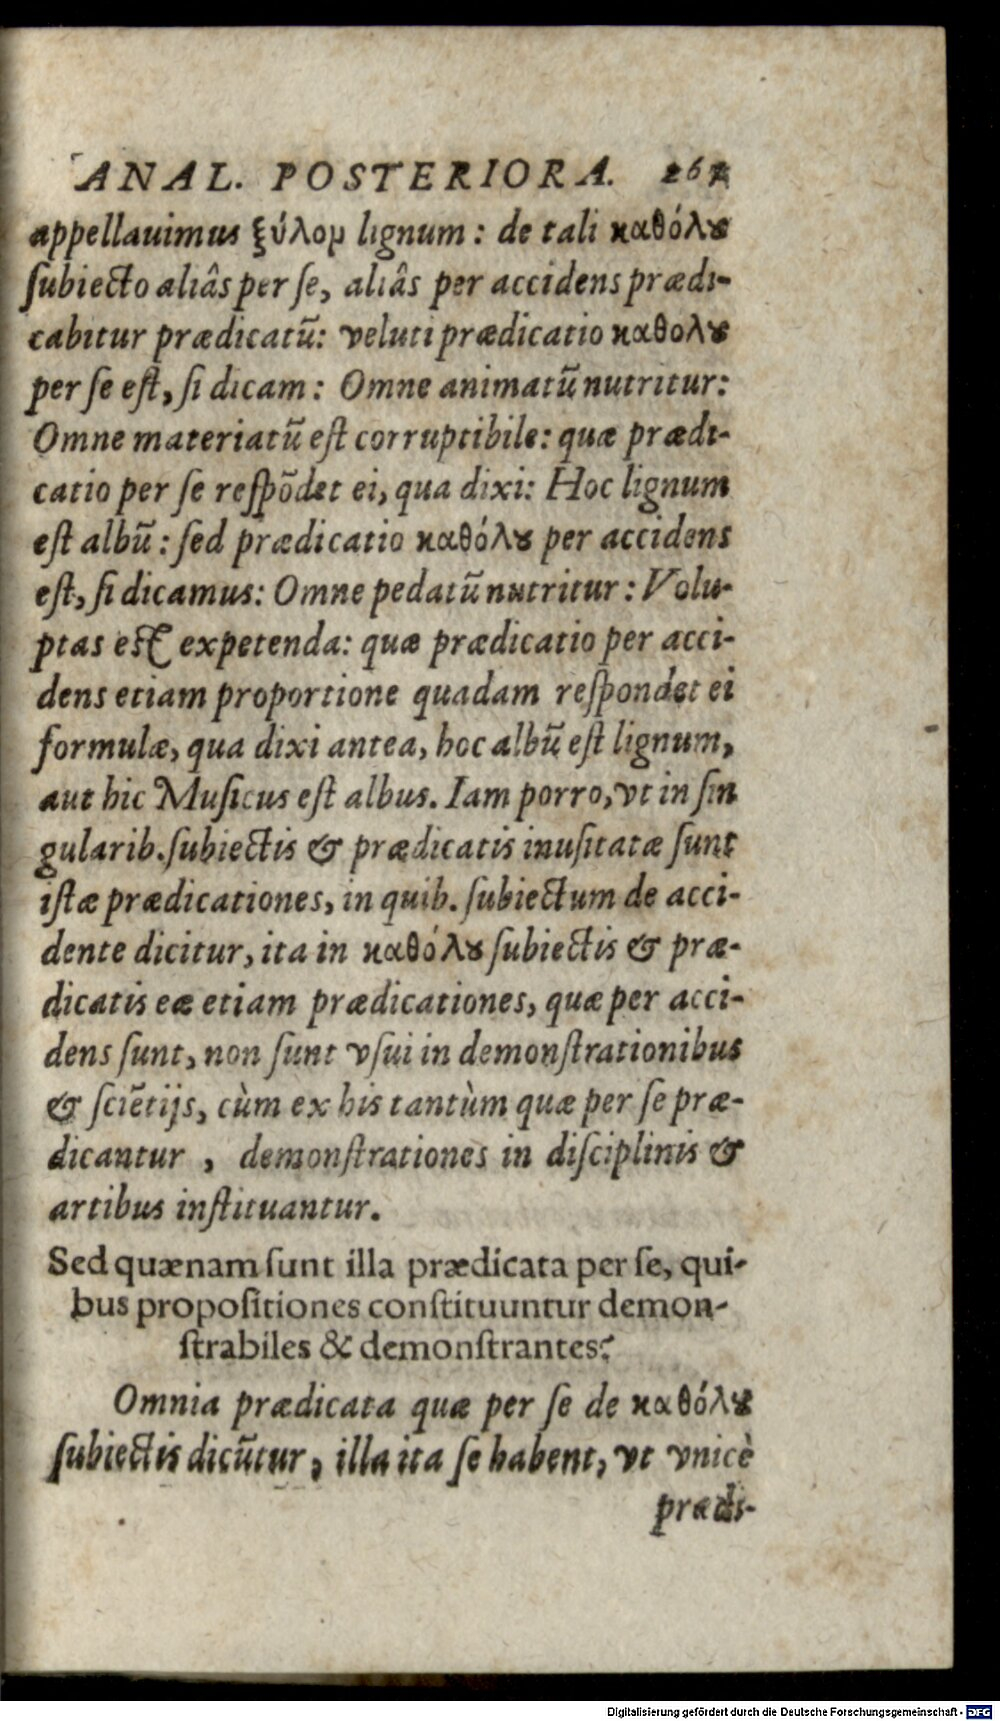 ANAL. POSTERIORA. 
appellauimus ξύλομ lignum : de tali καθόλȣ
ſubiecto aliâs per ſe, aliâs per accidens prædi-
cabitur prædicatū: veluti prædicatio καθολȣ
per ſe eſt, ſi dicam : Omne animatū nutritur:
Omne materiatū eſt corruptibile: quæ prædi-
catio per ſe reſpōdet ei, qua dixi: Hoc lignum
eſt albū : ſed prædicatio καθόλȣ per accidens
eſt, ſi dicamus: Omne pedatū nutritur : Volu-
ptas eſt expetenda: quæ prædicatio per acci-
dens etiam proportione quadam reſpondet ei
formulæ, qua dixi antea, hoc albū eſt lignum,
aut hic Muſicus eſt albus. Iam porro, vt in ſin
gularib. ſubiectis & prædicatis inuſitatæ ſunt
iſtæ prædicationes, in quib. ſubiectum de acci-
dente dicitur, ita in καθόλȣ ſubiectis & præ-
dicatis eæ etiam prædicationes, quæ per acci-
dens ſunt, non ſunt vſui in demonſtrationibus
& ſciētijs, cùm ex his tantùm quæ per ſe præ-
dicantur , demonſtrationes in diſciplinis &
artibus inſtituantur.
Sed quænam ſunt illa prædicata per ſe, qui-
bus propoſitiones conſtituuntur demon-
ſtrabiles & demonſtrantes?
Omnia prædicata quæ per ſe de καθόλȣ
ſubiectis dicūtur, illa ita ſe habent, vt vnicè
prædi-
Digitalisierung gefördert durch die Deutsche Forschungsgemeinschaft - DFG